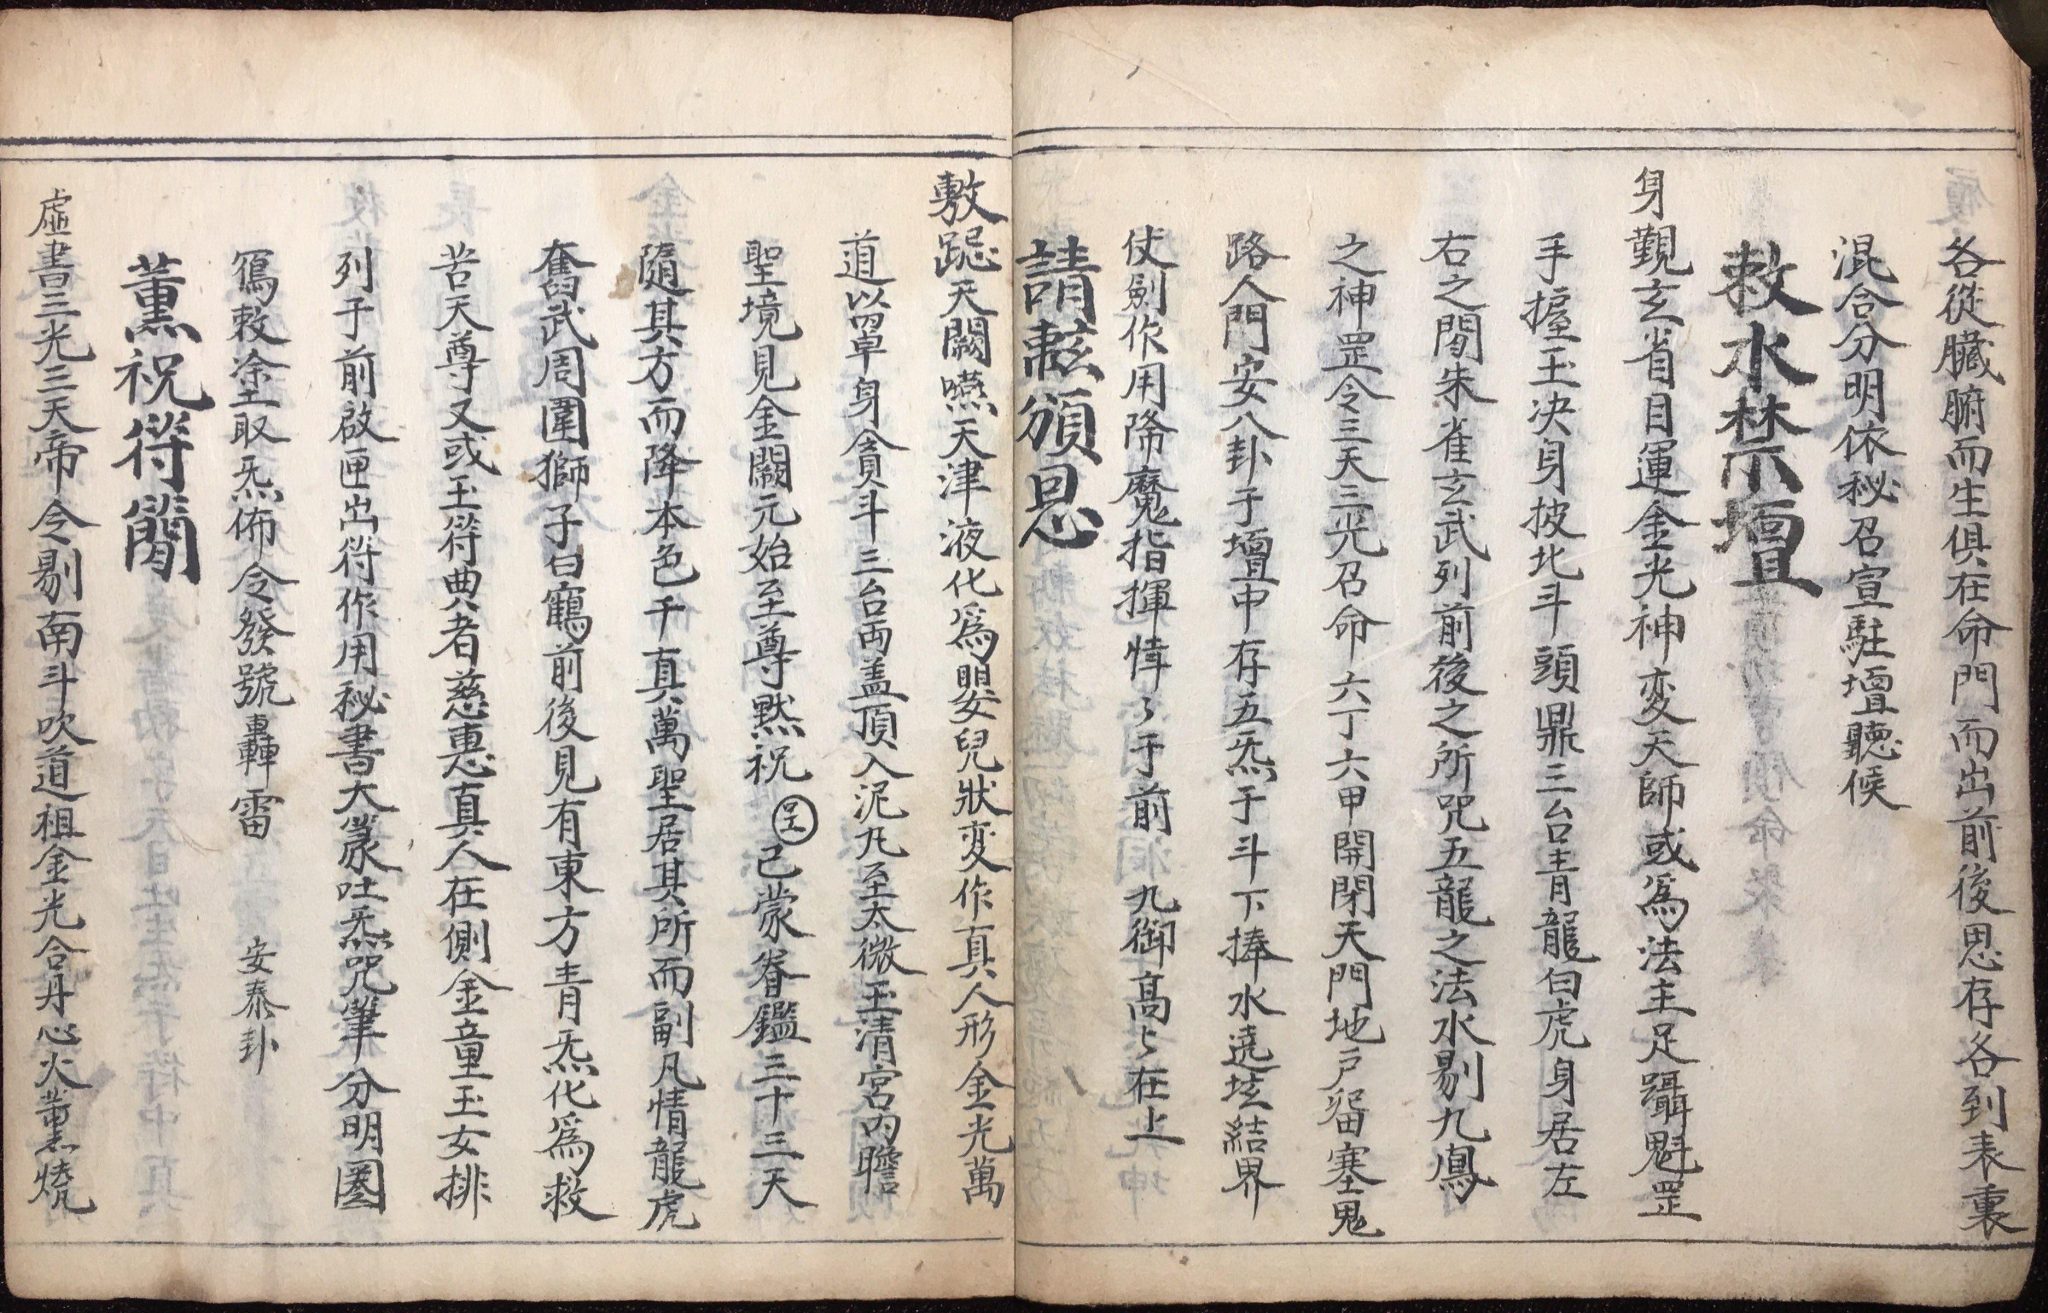 各從臟腑而生俱在命門而出前後思存各到表裏
混合分明依秘召宣駐壇聽候
敕水禁壇
身觀玄省目運金光神変天師或爲法主足躡魁罡
手握玉决身披北斗頭鼎三台青龍白虎身居左
右之間朱雀玄武列前後之所咒五龍之法水剔九鳳
之神罡令三天三光召命六丁六甲開閉天門地户留塞鬼
路人門安八卦于壇中存五炁于斗下捧水遶坛結界
仗劍作用降魔指揮情々于前 九御高々在上
請頒恩
敷跽天闕嚥天津液化爲嬰兒狀変作真人形金光萬
道𫂈罩身貪斗三台両盖頂入泥丸至太微玉清宮内瞻
聖境見金闕元始至尊黙祝 呈 已蒙眷鑑三十三天
隨其方而降本色千真萬聖居其所而副凡情龍虎
奮武周圍獅子白鶴前後見有東方青炁化爲救
苦天尊又或玉符典者慈惠真人在側金童玉女排
列于前啟匣出符作用秘書大篆吐炁咒筆分明圏
寫敕塗取炁佈令發號轟雷 安泰卦
薰祝符簡
虛書三光三天帝令剔南斗吹道祖金光合丹心火薰燒